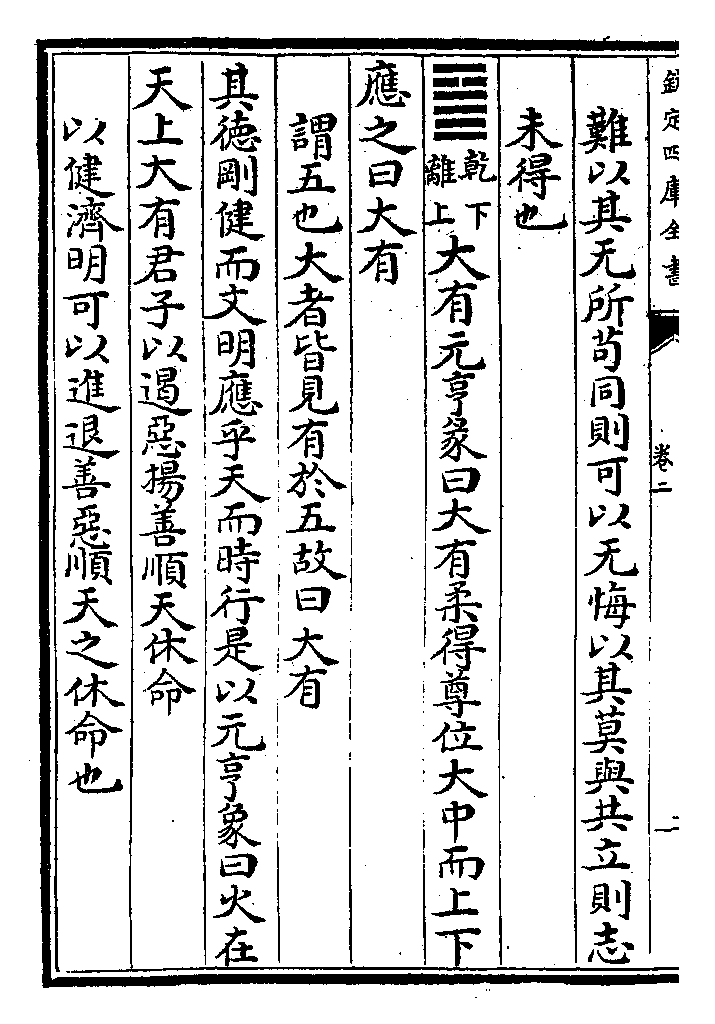 欽定四庫全書
卷二
二
難以其无所苟同則可以无悔以其莫與共立則志
未得也
䷍乾下離上大有元亨彖曰大有柔得尊位大中而上下
應之曰大有
謂五也大者皆見有於五故曰大有
其德剛健而文明應乎天而時行是以元亨象曰火在
天上大有君子以遏惡揚善順天休命
以健濟明可以進退善惡順天之休命也